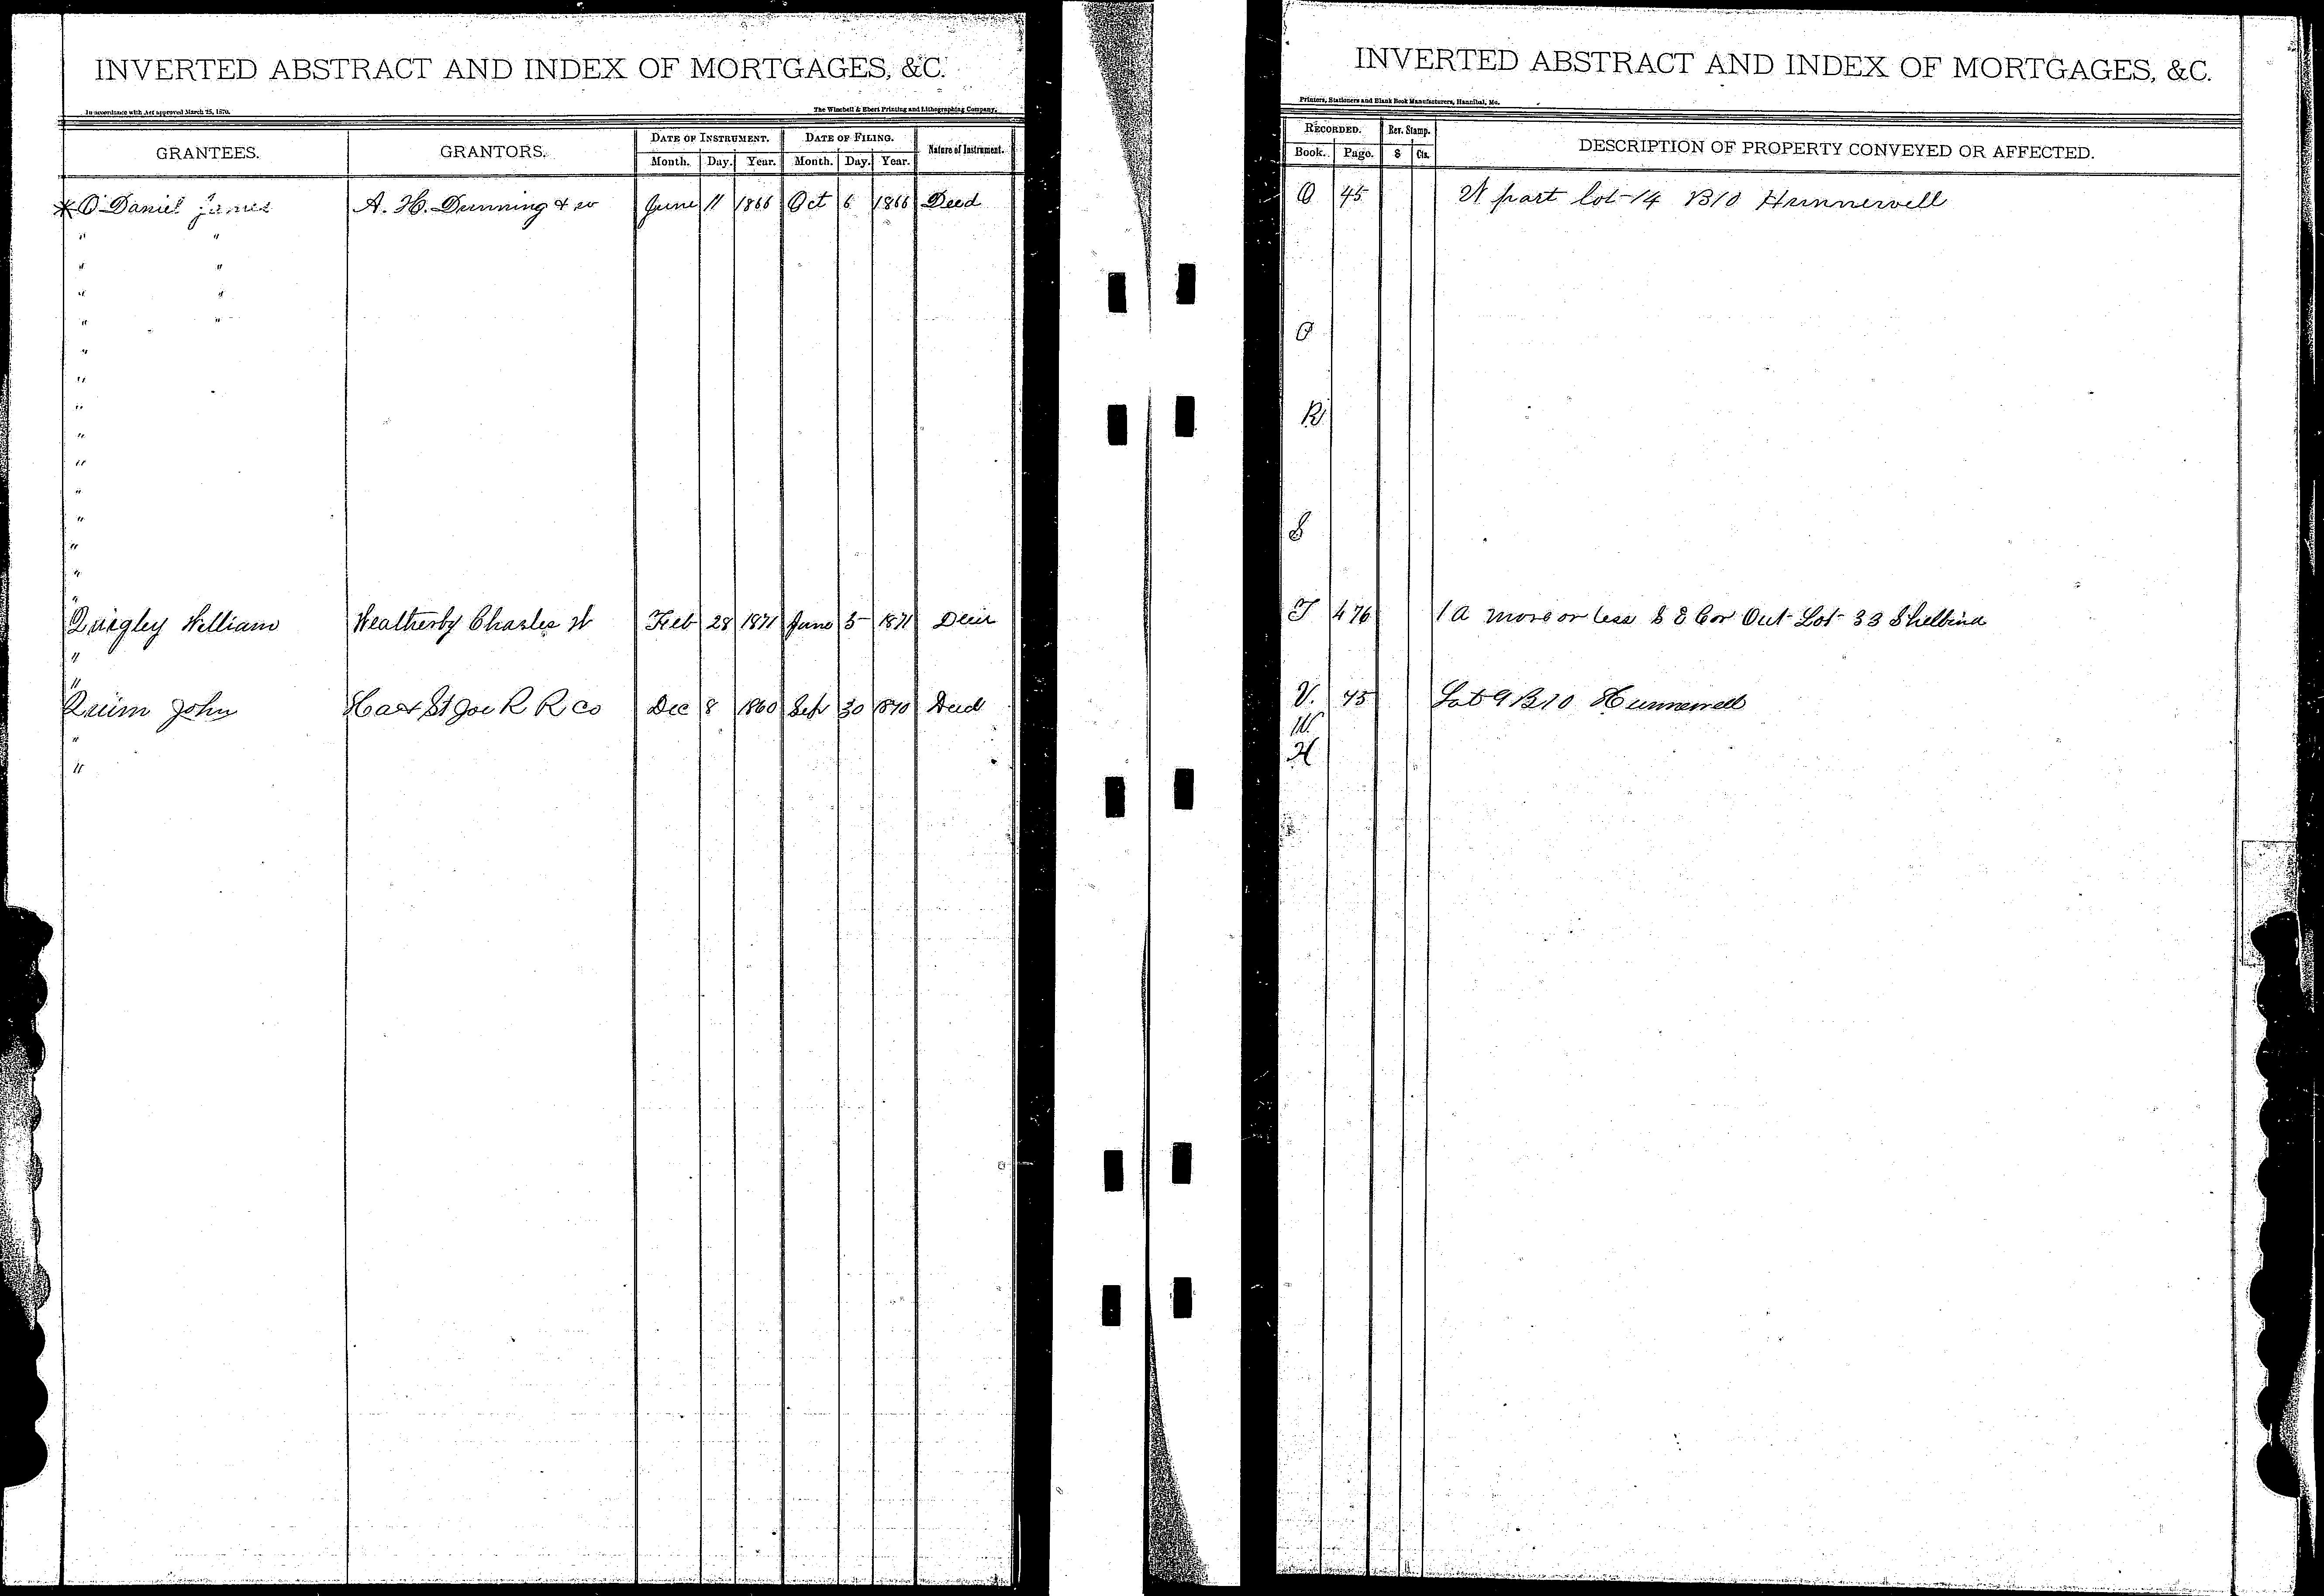 INVERTED ABSTRACT AND INDEX OF MORTGAGES, &C.
In accordance with Act approved March 25, 1870. The Winchell & Ebert Printing and Lithographing Company,
GRANTEES. GRANTORS. DATE OF INSTRUMENT. DATE OF FILING. Nature of Instrument.
Month. Day. Year. Month. Day. Year.
* O'Daniel James A. H. Dunning & w June 11 1866 Oct 6 1866 Deed
" "
" "
" "
" "
"
"
"
"
"
"
"
"
"
"
Quigley William Weatherby Charles W Feb 28 1871 June 5 1871 Deed
"
"
Quinn John Ha & St Joe R R Co Dec 8 1860 Sep 30 1870 Deed
"
"
INVERTED ABSTRACT AND INDEX OF MORTGAGES, &C.
Printers, Stationers and Blank Book Manufacturers, Hannibal, Mo.
RECORDED. Rev. Stamp. DESCRIPTION OF PROPERTY CONVEYED OR AFFECTED.
Book. Page. $ Cts.
Q 45 W part lot 14 B10 Hunnewell
O
R
S
T 476 1 a more or less S E Cor Out Lot 33 Shelbina
V. 45 Lot 9 B 10 Hunnewell
W.